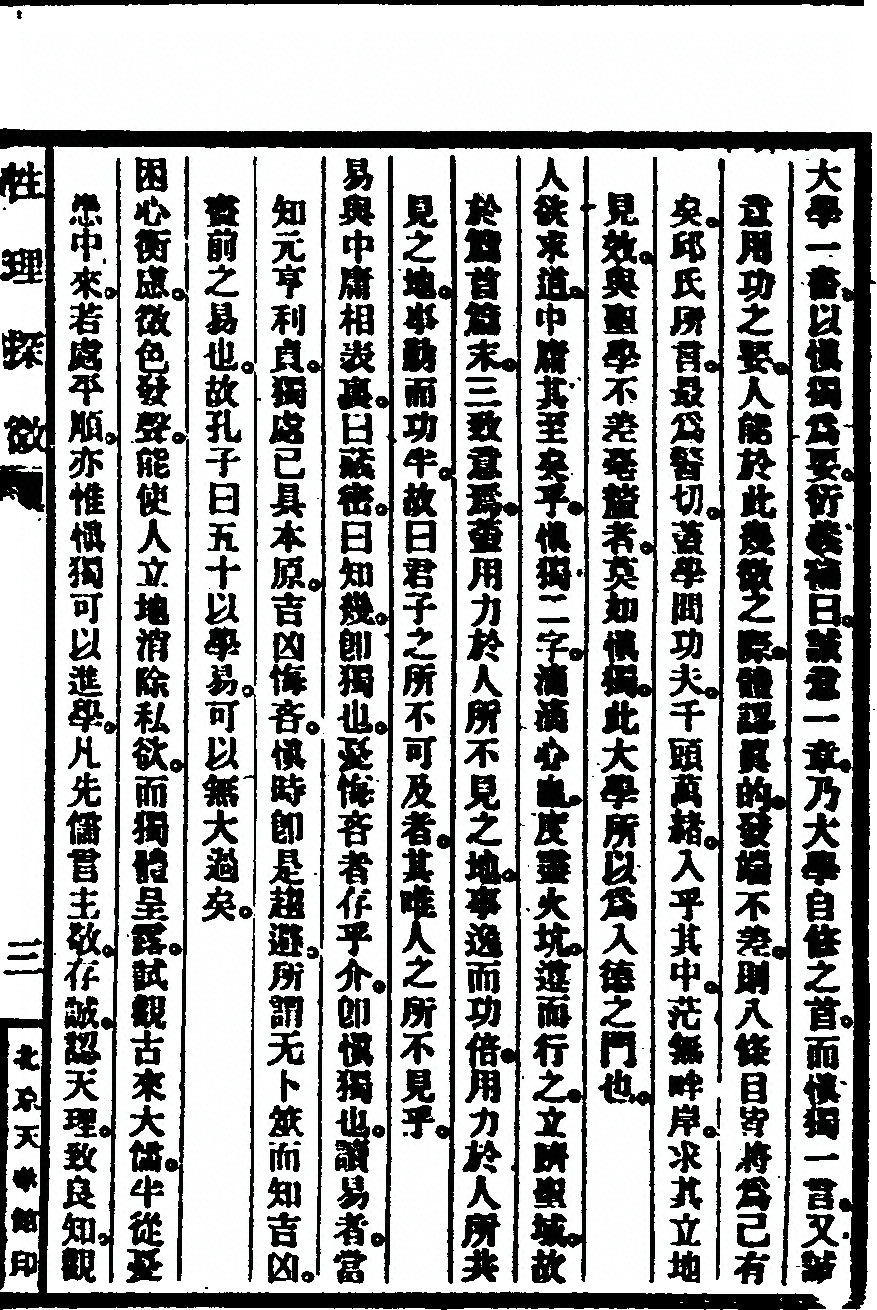 大學一書。以慎獨爲要。衍義補曰。誠意一章。乃大學自修之首。而慎獨一言。又誠
意用功之要。人能於此幾微之際。體認眞的。發端不差。則八條目皆將爲己有
矣。邱氏所言。最爲警切。蓋學問功夫。千頭萬緒。入乎其中。茫無畔岸。求其立地
見效。與聖學不差毫釐者。莫如慎獨。此大學所以爲入德之門也。
人欲求道。中庸其至矣乎。慎獨二字。滴滴心血。度盡火坑。遵而行之。立躋聖域。故
於篇首篇末。三致意焉。蓋用力於人所不見之地。事逸而功倍。用力於人所共
見之地。事勤而功半。故曰君子之所不可及者。其唯人之所不見乎。
易與中庸相表裏。曰藏密。曰知幾。卽獨也。憂悔吝者存乎介。卽慎獨也。讀易者。當
知元亨利貞。獨處已具本原。吉凶悔吝。慎時卽是趨避。所謂无卜筮而知吉凶。
畫前之易也。故孔子曰五十以學易。可以無大過矣。
困心衡慮。徵色發聲。能使人立地消除私欲。而獨體呈露。試觀古來大儒。半從憂
患中來。若處平順。亦惟慎獨可以進學。凡先儒言主敬。存誠。認天理。致良知。觀
性理探微
三
北京天華館印